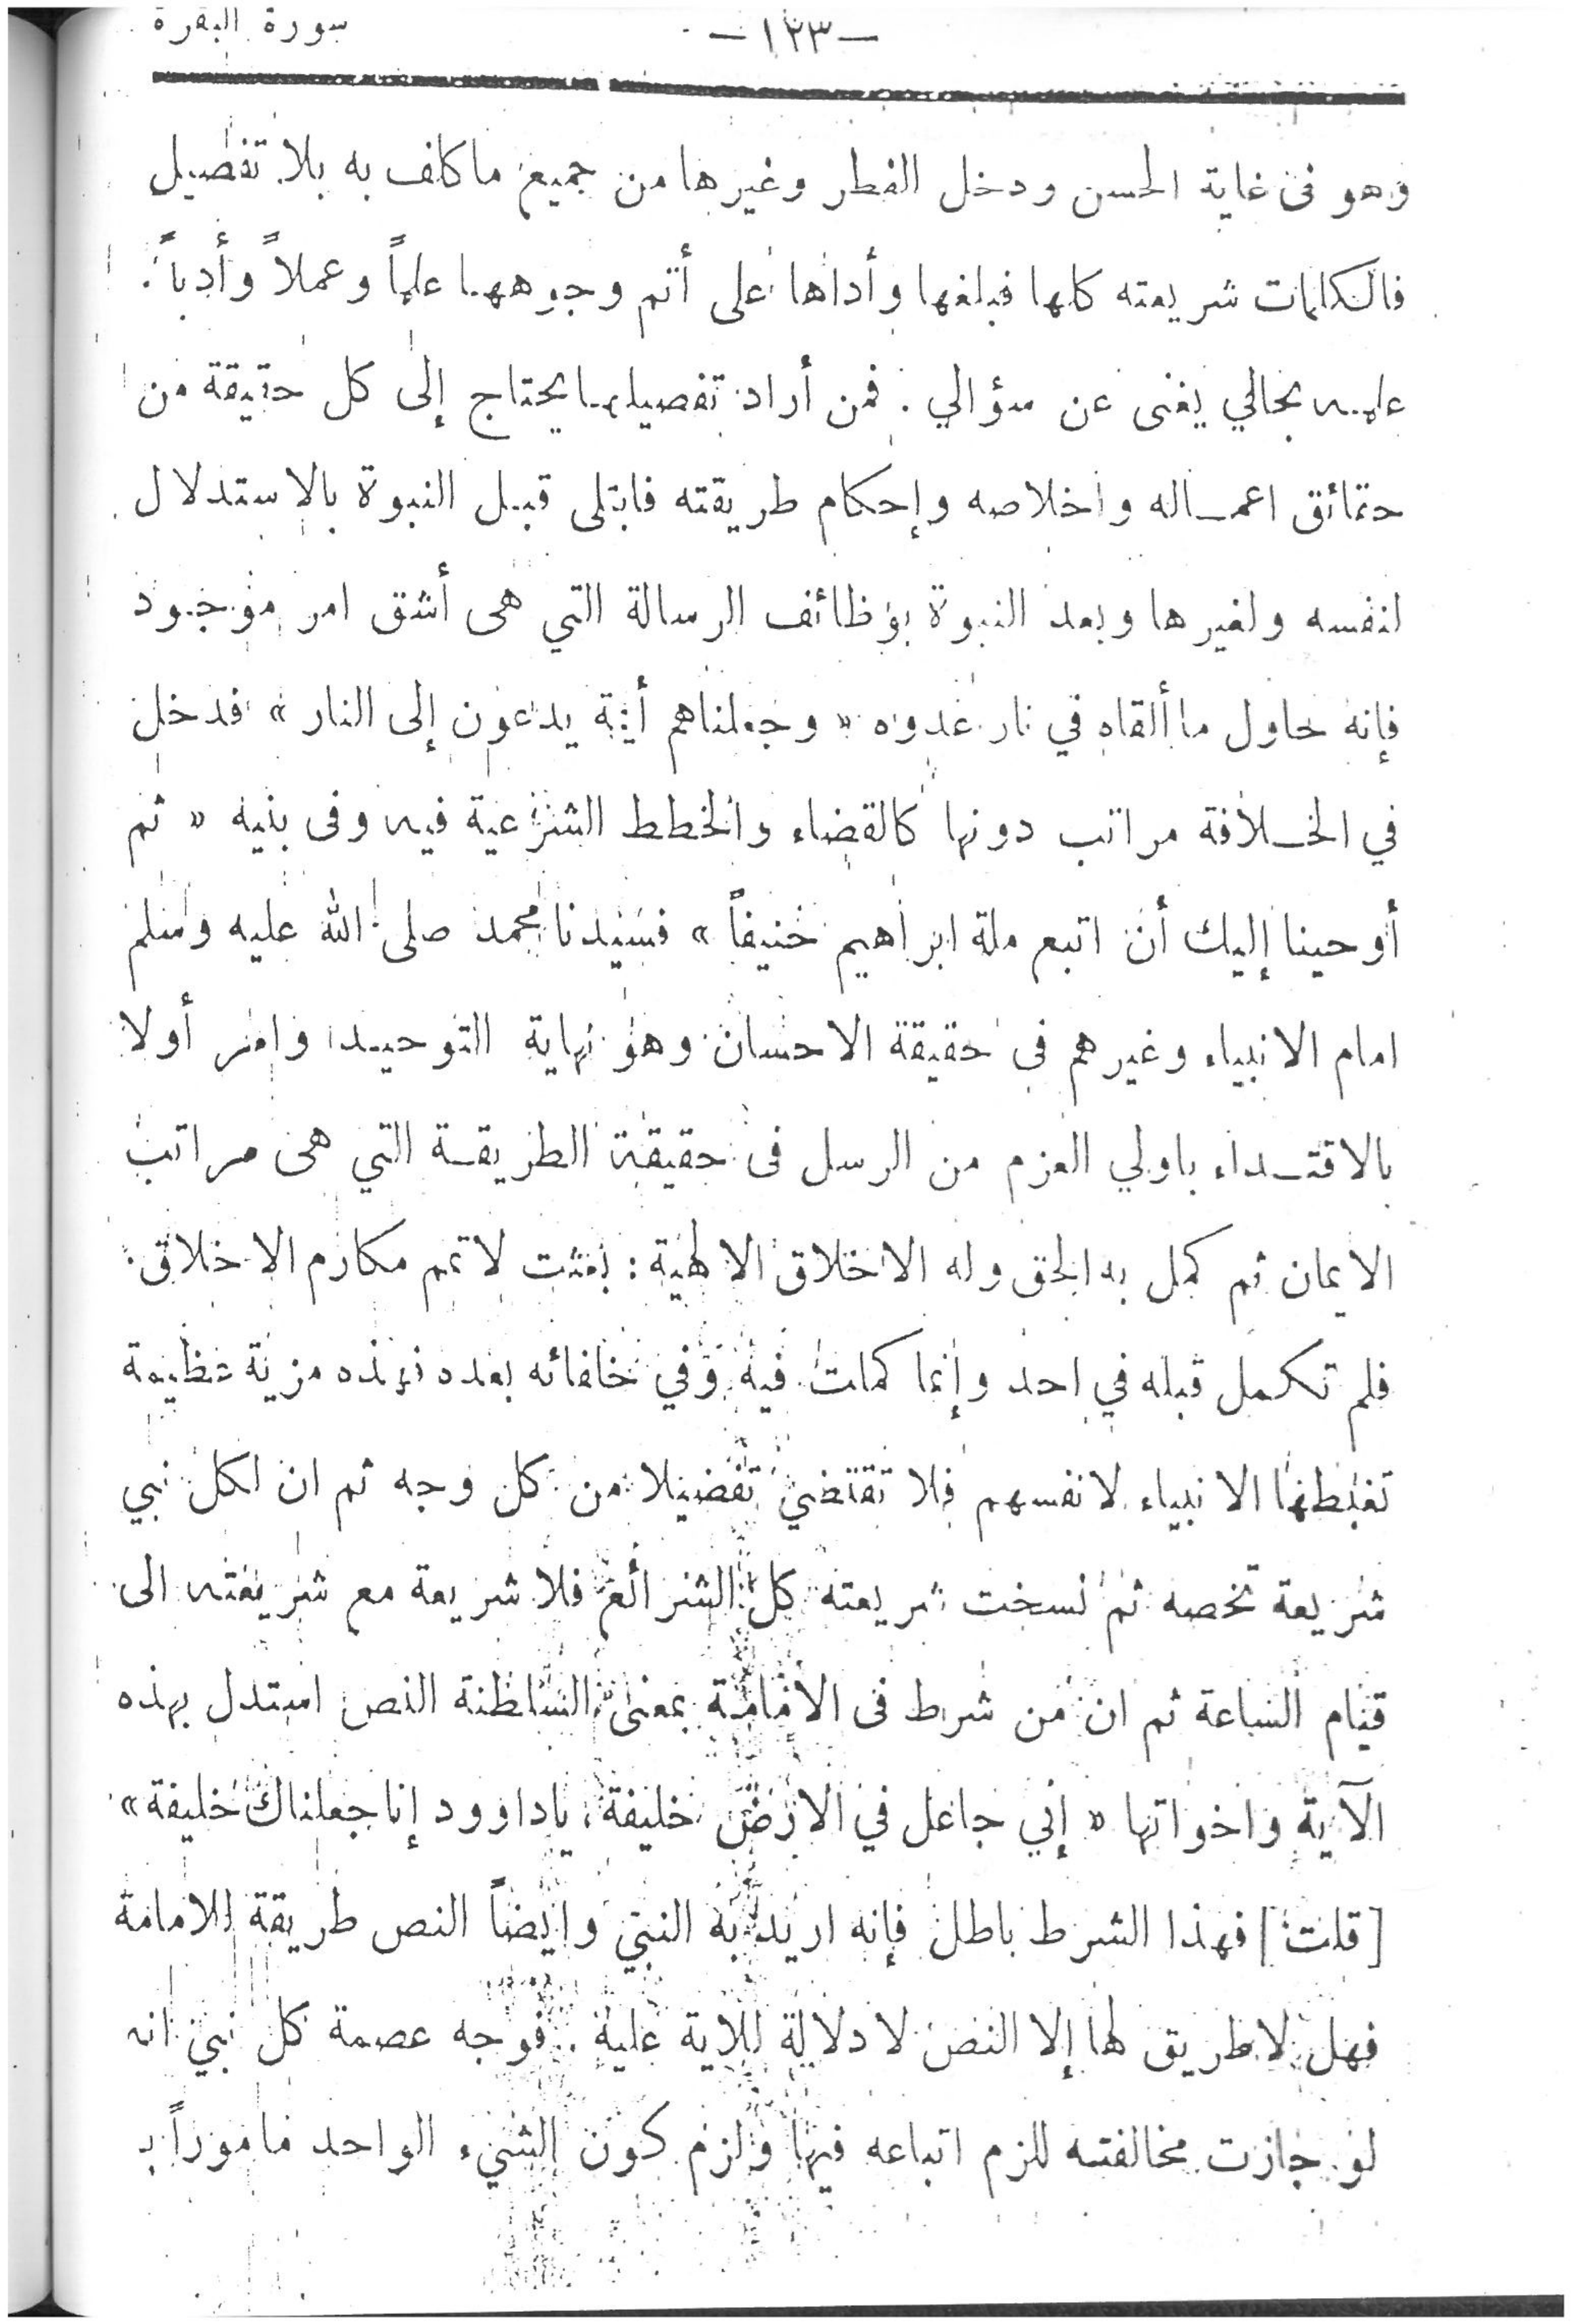 سورة البقرة
—١٢٣—
وهو فى غاية الحسن ودخل الفطر وغيرها من جميع ما كلف به بلا تفصيل
فالكلمات شريعته كلها فبلغها وأداها على أتم وجوهها علماً وعملاً وأدباً.
علمه بحالي يغنى عن سؤالي . فمن أراد تفصيلها يحتاج إلى كل حقيقة من
حقائق اعماله واخلاصه وإحكام طريقته فابتلى قبل النبوة بالاستدلال
لنفسه ولغيرها وبعد النبوة بوظائف الرسالة التي هى أشق امر موجود
فإنه حاول ما ألقاه في نار عدوه « وجعلناهم أئمة يدعون إلى النار » فدخل
في الخلافة مراتب دونها كالقضاء والخطط الشرعية فيه وفى بنيه « ثم
أوحينا إليك أن اتبع ملة ابراهيم حنيفاً » فسيدنا محمد صلى الله عليه وسلم
امام الانبياء وغيرهم فى حقيقة الاحسان وهو نهاية التوحيد وامر أولا
بالاقتداء باولي العزم من الرسل فى حقيقة الطريقة التي هى مراتب
الايمان ثم كمل به الحق وله الاخلاق الالهية : بعثت لاتمم مكارم الاخلاق.
فلم تكمل قبله في احد وإنما كملت فيه وفي خلفائه بعده فهذه مزية عظيمة
تغبطها الانبياء لانفسهم فلا تقتضي تفضيلا من كل وجه ثم ان لكل نبي
شريعة تخصه ثم نسخت شريعته كل الشرائع فلا شريعة مع شريعته الى
قيام الساعة ثم ان من شرط فى الامامة بمعنى السلطنة النص استدل بهذه
الآية واخواتها « إني جاعل في الارض خليفة ، ياداوود إنا جعلناك خليفة »
[ قلت ] فهذا الشرط باطل فإنه اريد به النبي وايضاً النص طريقة للامامة
فهل لا طريق لها إلا النص لا دلالة للاية عليه . فوجه عصمة كل نبي انه
لو جازت مخالفته للزم اتباعه فيها ولزم كون الشيء الواحد ماموراً به